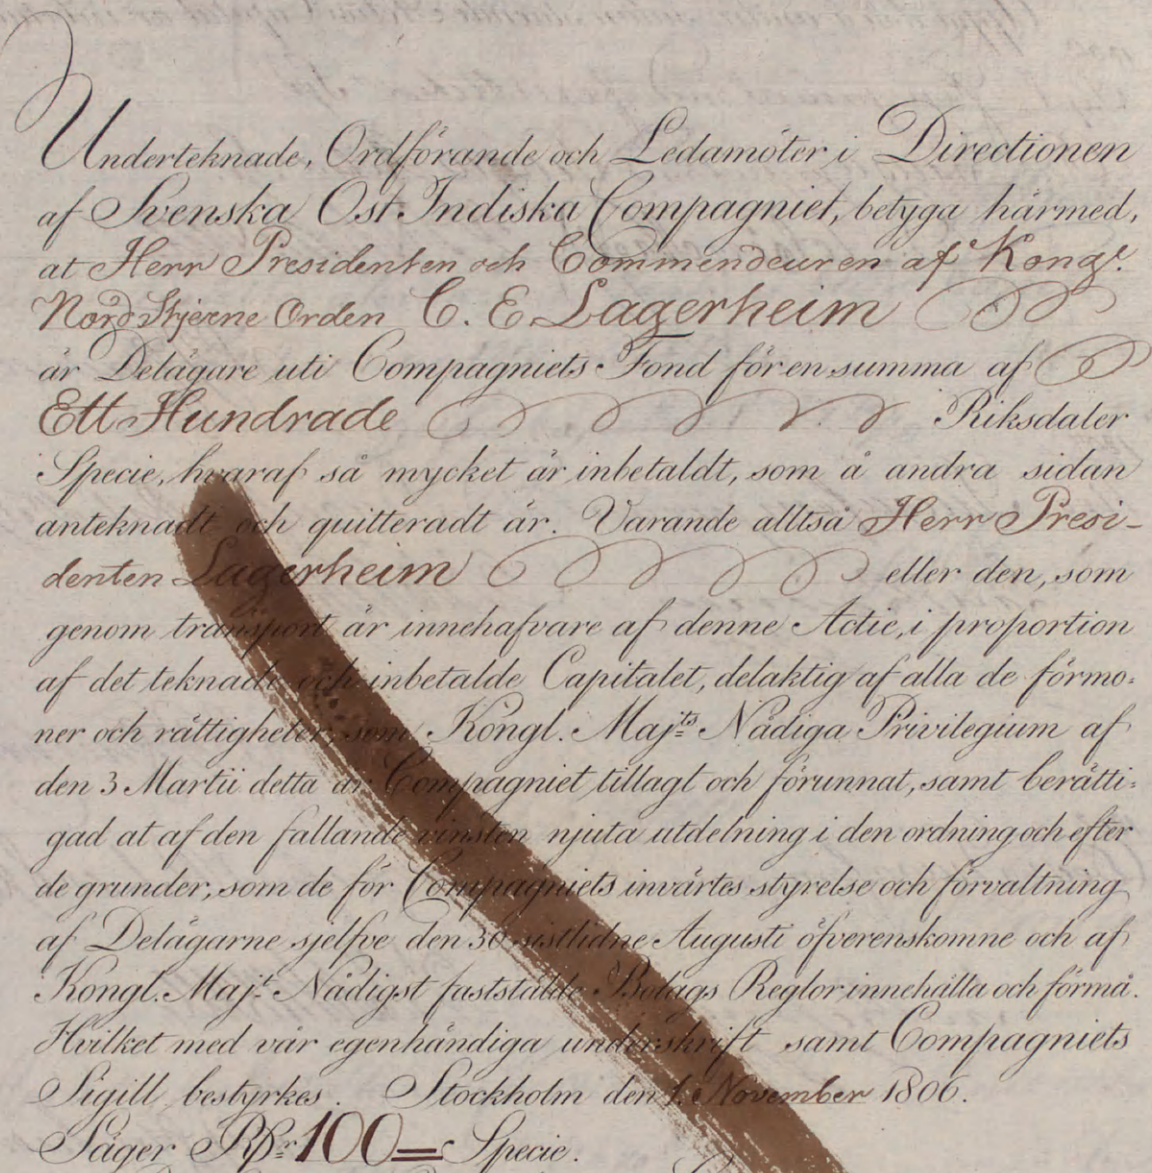 Underteknade, Ordförande och Ledamöter i Directionen
af Svenska Ost Indiska Compagniet, betyga härmed,
at Herr Presidenten och Commendeuren af Kongl.
Nord Stjerne Orden C. E. Lagerheim
är Delägare uti Compagniets Fond för en summa af
Ett Hundrade Riksdaler
Specie, hvaraf så mycket är inbetaldt, som å andra sidan
anteknadt och quitteradt är. Varande alltså Herr Presi-
denten Lagerheim eller den, som
genom transport är innehafvare af denne Actie, i proportion
af det teknade och inbetalde Capitalet, delaktig af alla de förmo-
ner och rättigheter, som Kongl. Maj:ts Nådiga Privilegium af
den 3 Martii detta år Compagniet tillagt och förunnat, samt berätti-
gad at af den fallande vinsten njuta utdelning i den ordning och efter
de grunder, som de för Compagniets invärtes styrelse och förvaltning
af Delägarne sjelfve den 30 sistlidne Augusti öfverenskomne och af
Kongl. Maj:t Nådigst faststälde Bolags Reglor innehålla och förmå.
Hvilket med vår egenhändiga underskrift samt Compagniets
Sigill bestyrkes. Stockholm den 1. November 1806.
Säger Rdr 100= Specie.